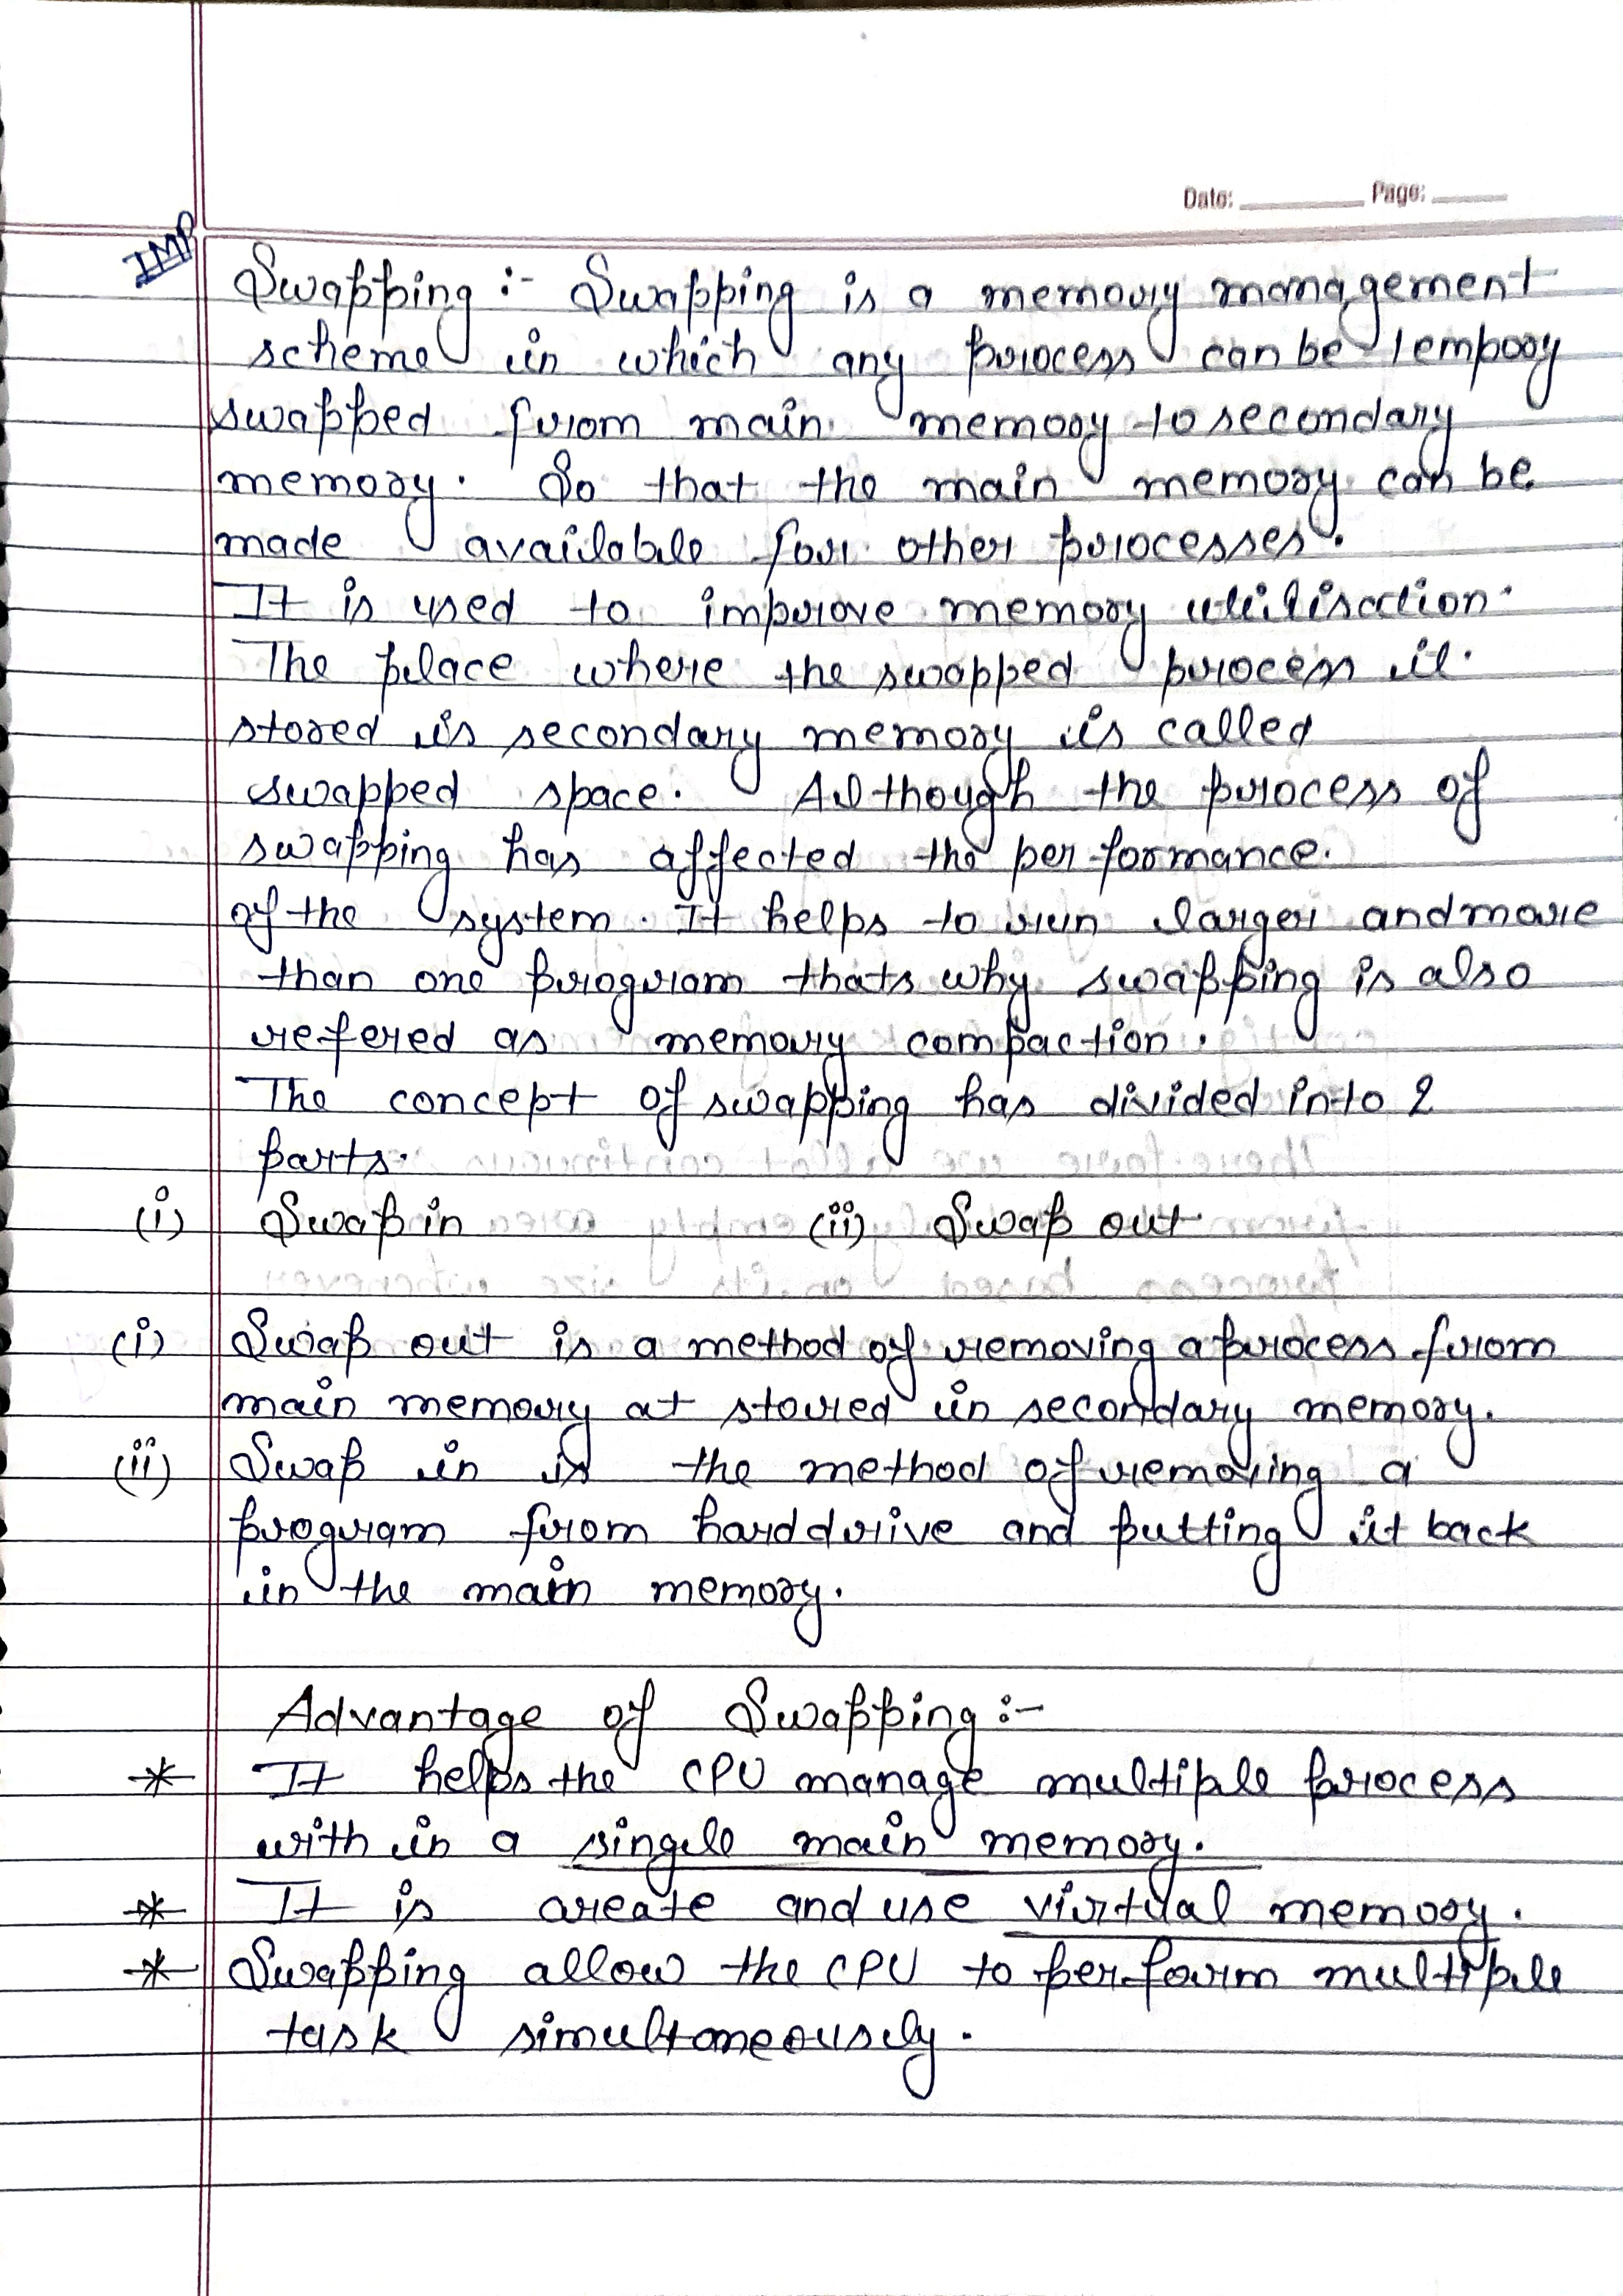 Date: Page:
IMP
Swapping :- Swapping is a memory management
scheme in which any process can be tempory
swapped from main memory to secondary
memory. So that the main memory can be
made available for other processes.
It is used to improve memory utilisation.
The place where the swapped process it
stored is secondary memory is called
swapped space. Although the process of
swapping has affected the performance.
of the system. It helps to run larger and more
than one program thats why swapping is also
refered as memory compaction.
The concept of swapping has divided into 2
parts.
(i) Swap in (ii) Swap out
(i) Swap out is a method of removing a process from
main memory at stored in secondary memory.
(ii) Swap in is the method of removing a
program from hard drive and putting it back
in the main memory.
Advantage of Swapping :-
* It helps the CPU manage multiple process
with in a single main memory.
* It is create and use virtual memory.
* Swapping allow the CPU to perform multiple
task simultaneously.